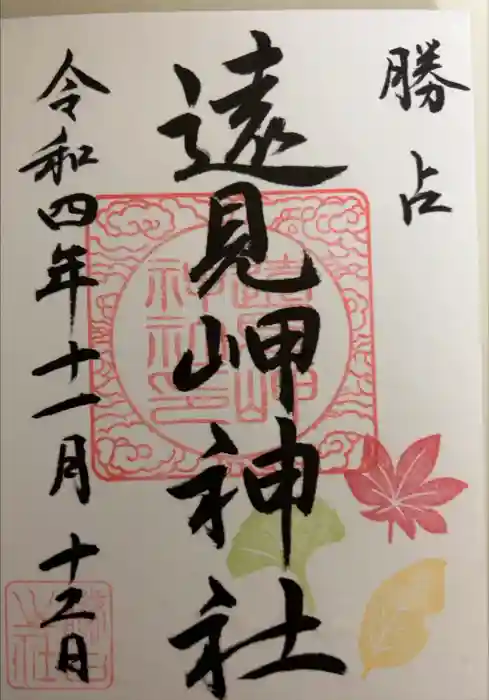 勝占
遠見岬神社
令和四年十一月十二日